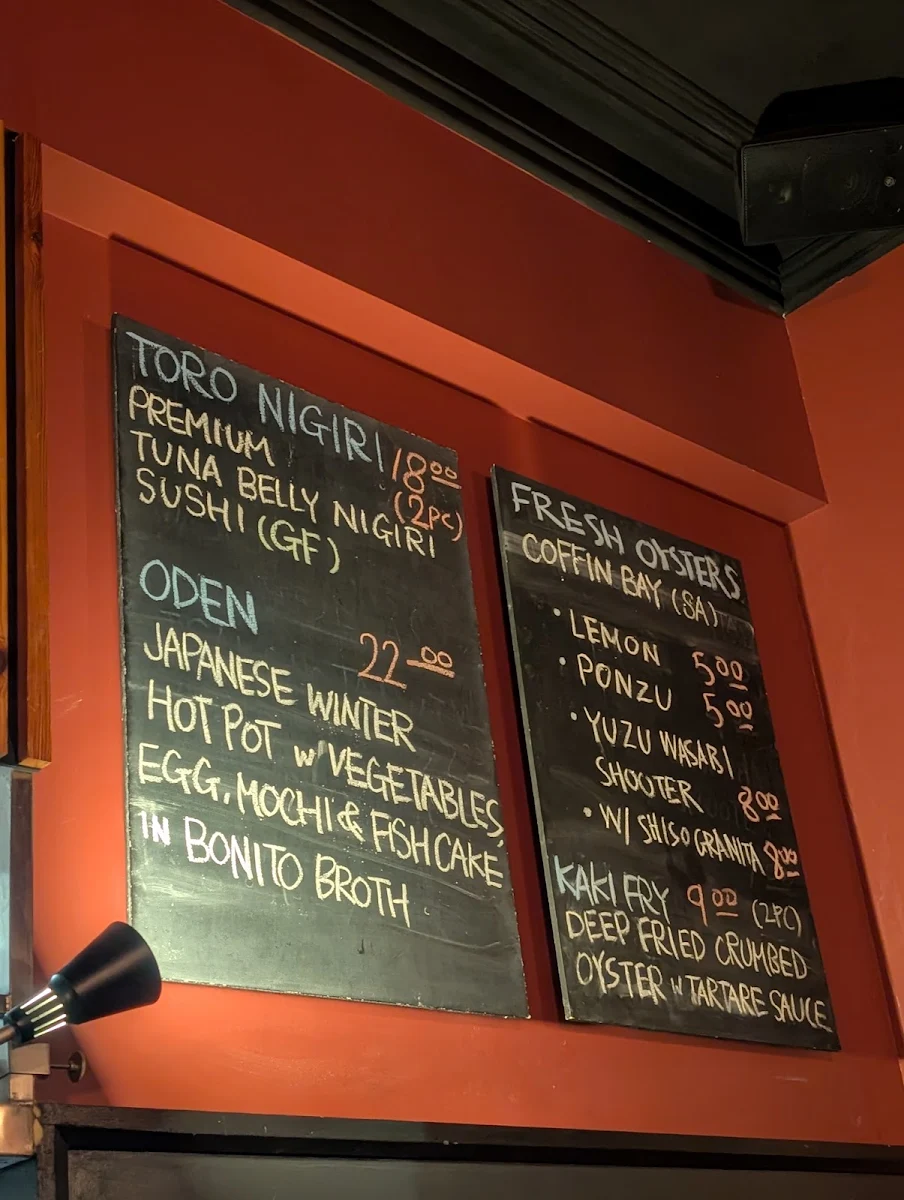 TORO NIGIRI
PREMIUM 18.00
TUNA BELLY NIGIRI (2PC)
SUSHI (GF)
ODEN
22.00
JAPANESE WINTER
HOT POT w/ VEGETABLES,
EGG, MOCHI & FISH CAKE
IN BONITO BROTH
FRESH OYSTERS
COFFIN BAY (SA)
• LEMON 5.00
• PONZU 5.00
• YUZU WASABI
SHOOTER 8.00
• W/ SHISO GRANITA 8.00
KAKI FRY 9.00 (2PC)
DEEP FRIED CRUMBED
OYSTER w TARTARE SAUCE